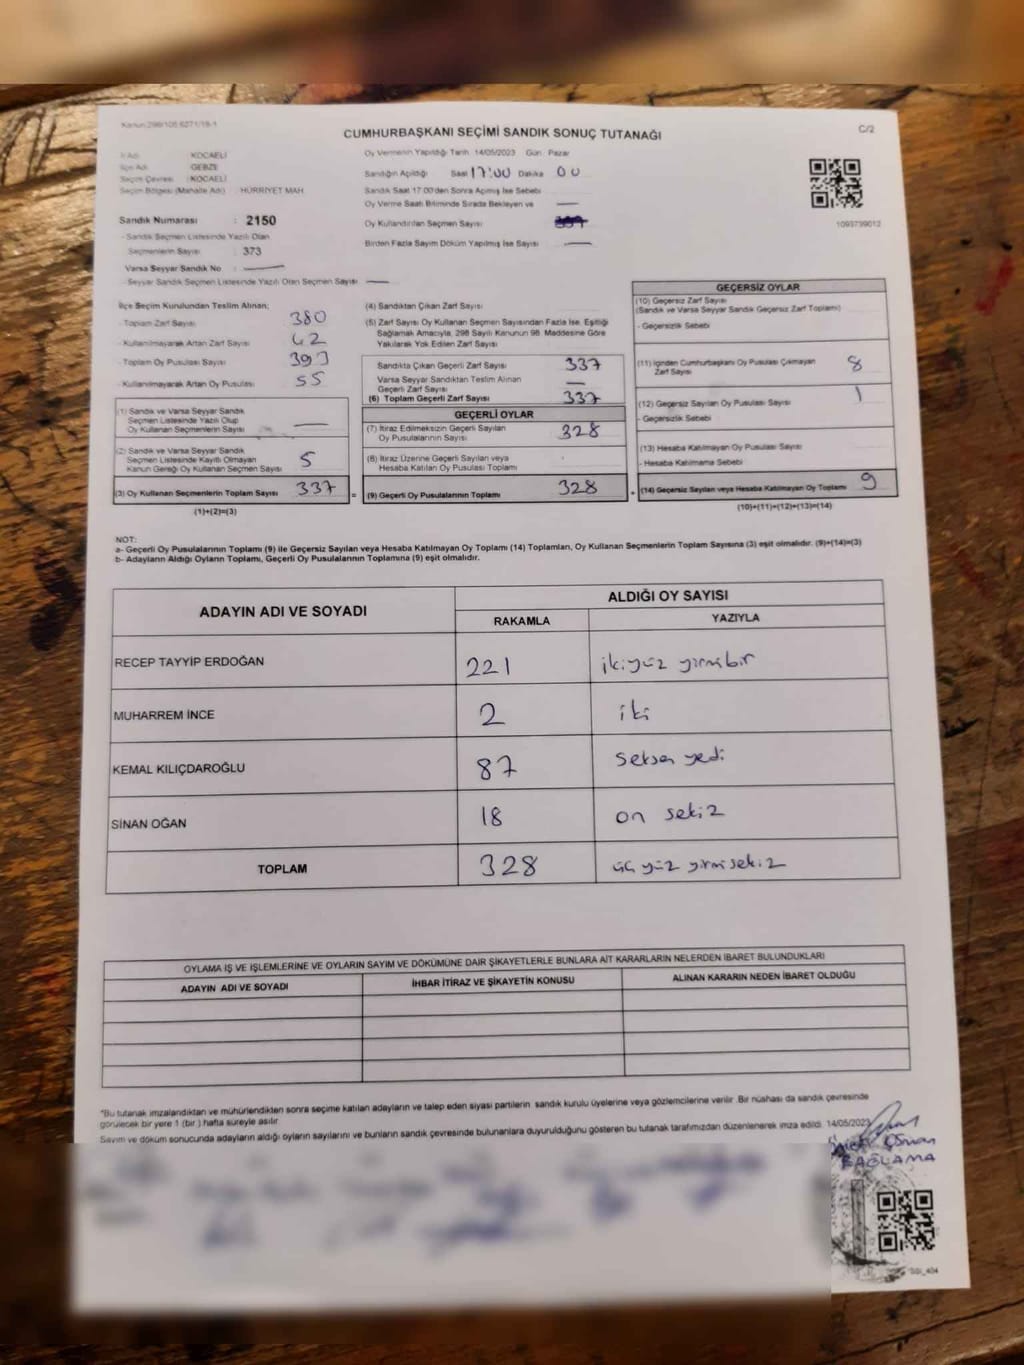 Kanun:298/105 6271/19-1
CUMHURBAŞKANI SEÇİMİ SANDIK SONUÇ TUTANAĞI
C/2
İl Adı : KOCAELİ
İlçe Adı : GEBZE
Seçim Çevresi : KOCAELİ
Seçim Bölgesi (Mahalle Adı) : HÜRRİYET MAH.
Sandık Numarası : 2150
- Sandık Seçmen Listesinde Yazılı Olan
Seçmenlerin Sayısı : 373
Varsa Seyyar Sandık No :
- Seyyar Sandık Seçmen Listesinde Yazılı Olan Seçmen Sayısı
Oy Vermenin Yapıldığı Tarih 14/05/2023 Gün : Pazar
Sandığın Açıldığı Saat 17:00 Dakika 00
Sandık Saat 17:00'den Sonra Açılmış İse Sebebi
Oy Verme Saati Bitiminde Sırada Bekleyen ve
Oy Kullandırılan Seçmen Sayısı
Birden Fazla Sayım Döküm Yapılmış İse Sayısı
1093739012
İlçe Seçim Kurulundan Teslim Alınan;
- Toplam Zarf Sayısı 380
- Kullanılmayarak Artan Zarf Sayısı 42
- Toplam Oy Pusulası Sayısı 393
- Kullanılmayarak Artan Oy Pusulası 55
(1) Sandık ve Varsa Seyyar Sandık
Seçmen Listesinde Yazılı Olup
Oy Kullanan Seçmenlerin Sayısı
(2) Sandık ve Varsa Seyyar Sandık
Seçmen Listesinde Kayıtlı Olmayan
Kanun Gereği Oy Kullanan Seçmen Sayısı 5
(3) Oy Kullanan Seçmenlerin Toplam Sayısı 337 =
(1)+(2)=(3)
(4) Sandıktan Çıkan Zarf Sayısı
(5) Zarf Sayısı Oy Kullanan Seçmen Sayısından Fazla İse, Eşitliği
Sağlamak Amacıyla, 298 Sayılı Kanunun 98. Maddesine Göre
Yakılarak Yok Edilen Zarf Sayısı
Sandıkta Çıkan Geçerli Zarf Sayısı 337
Varsa Seyyar Sandıktan Teslim Alınan
Geçerli Zarf Sayısı
(6) Toplam Geçerli Zarf Sayısı 337
GEÇERLİ OYLAR
(7) İtiraz Edilmeksizin Geçerli Sayılan
Oy Pusulalarının Sayısı 328
(8) İtiraz Üzerine Geçerli Sayılan veya
Hesaba Katılan Oy Pusulası Toplamı
(9) Geçerli Oy Pusulalarının Toplamı 328 +
GEÇERSİZ OYLAR
(10) Geçersiz Zarf Sayısı
(Sandık ve Varsa Seyyar Sandık Geçersiz Zarf Toplamı)
- Geçersizlik Sebebi
(11) İçinden Cumhurbaşkanı Oy Pusulası Çıkmayan
Zarf Sayısı 8
(12) Geçersiz Sayılan Oy Pusulası Sayısı 1
- Geçersizlik Sebebi
(13) Hesaba Katılmayan Oy Pusulası Sayısı
- Hesaba Katılmama Sebebi
(14) Geçersiz Sayılan veya Hesaba Katılmayan Oy Toplamı 9
(10)+(11)+(12)+(13)=(14)
NOT:
a- Geçerli Oy Pusulalarının Toplamı (9) ile Geçersiz Sayılan veya Hesaba Katılmayan Oy Toplamı (14) Toplamları, Oy Kullanan Seçmenlerin Toplam Sayısına (3) eşit olmalıdır. (9)+(14)=(3)
b- Adayların Aldığı Oyların Toplamı, Geçerli Oy Pusulalarının Toplamına (9) eşit olmalıdır.
ADAYIN ADI VE SOYADI
ALDIĞI OY SAYISI
RAKAMLA YAZIYLA
RECEP TAYYİP ERDOĞAN 221 ikiyüz yirmibir
MUHARREM İNCE 2 iki
KEMAL KILIÇDAROĞLU 87 seksen yedi
SİNAN OĞAN 18 on sekiz
TOPLAM 328 üç yüz yirmisekiz
OYLAMA İŞ VE İŞLEMLERİNE VE OYLARIN SAYIM VE DÖKÜMÜNE DAİR ŞİKAYETLERLE BUNLARA AİT KARARLARIN NELERDEN İBARET BULUNDUKLARI
ADAYIN ADI VE SOYADI İHBAR İTİRAZ VE ŞİKAYETİN KONUSU ALINAN KARARIN NEDEN İBARET OLDUĞU
"Bu tutanak imzalandıktan ve mühürlendikten sonra seçime katılan adayların ve talep eden siyasi partilerin sandık kurulu üyelerine veya gözlemcilerine verilir .Bir nüshası da sandık çevresinde
görülecek bir yere 1 (bir ) hafta süreyle asılır.
Sayım ve döküm sonucunda adayların aldığı oyların sayılarını ve bunların sandık çevresinde bulunanlara duyurulduğunu gösteren bu tutanak tarafımızdan düzenlenerek imza edildi. 14/05/2023
Osman
BAĞLAMA